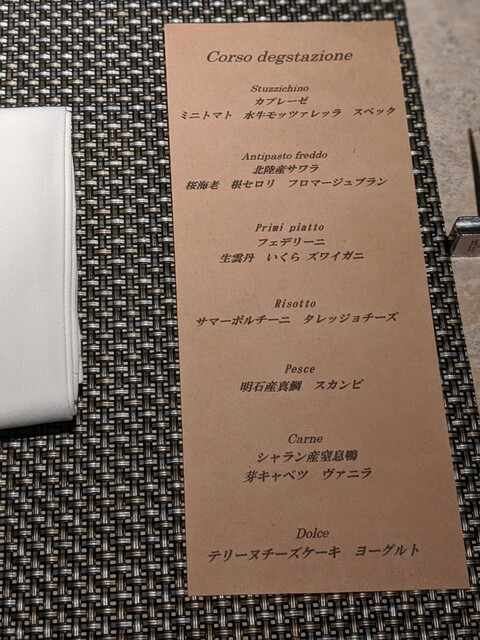 Corso degstazione
Stuzzichino
カプレーゼ
ミニトマト 水牛モッツァレッラ スペック
Antipasto freddo
北陸産サワラ
桜海老 根セロリ フロマージュブラン
Primi piatto
フェデリーニ
生雲丹 いくら ズワイガニ
Risotto
サマーポルチーニ タレッジョチーズ
Pesce
明石産真鯛 スカンピ
Carne
シャラン産窒息鴨
芽キャベツ ヴァニラ
Dolce
テリーヌチーズケーキ ヨーグルト